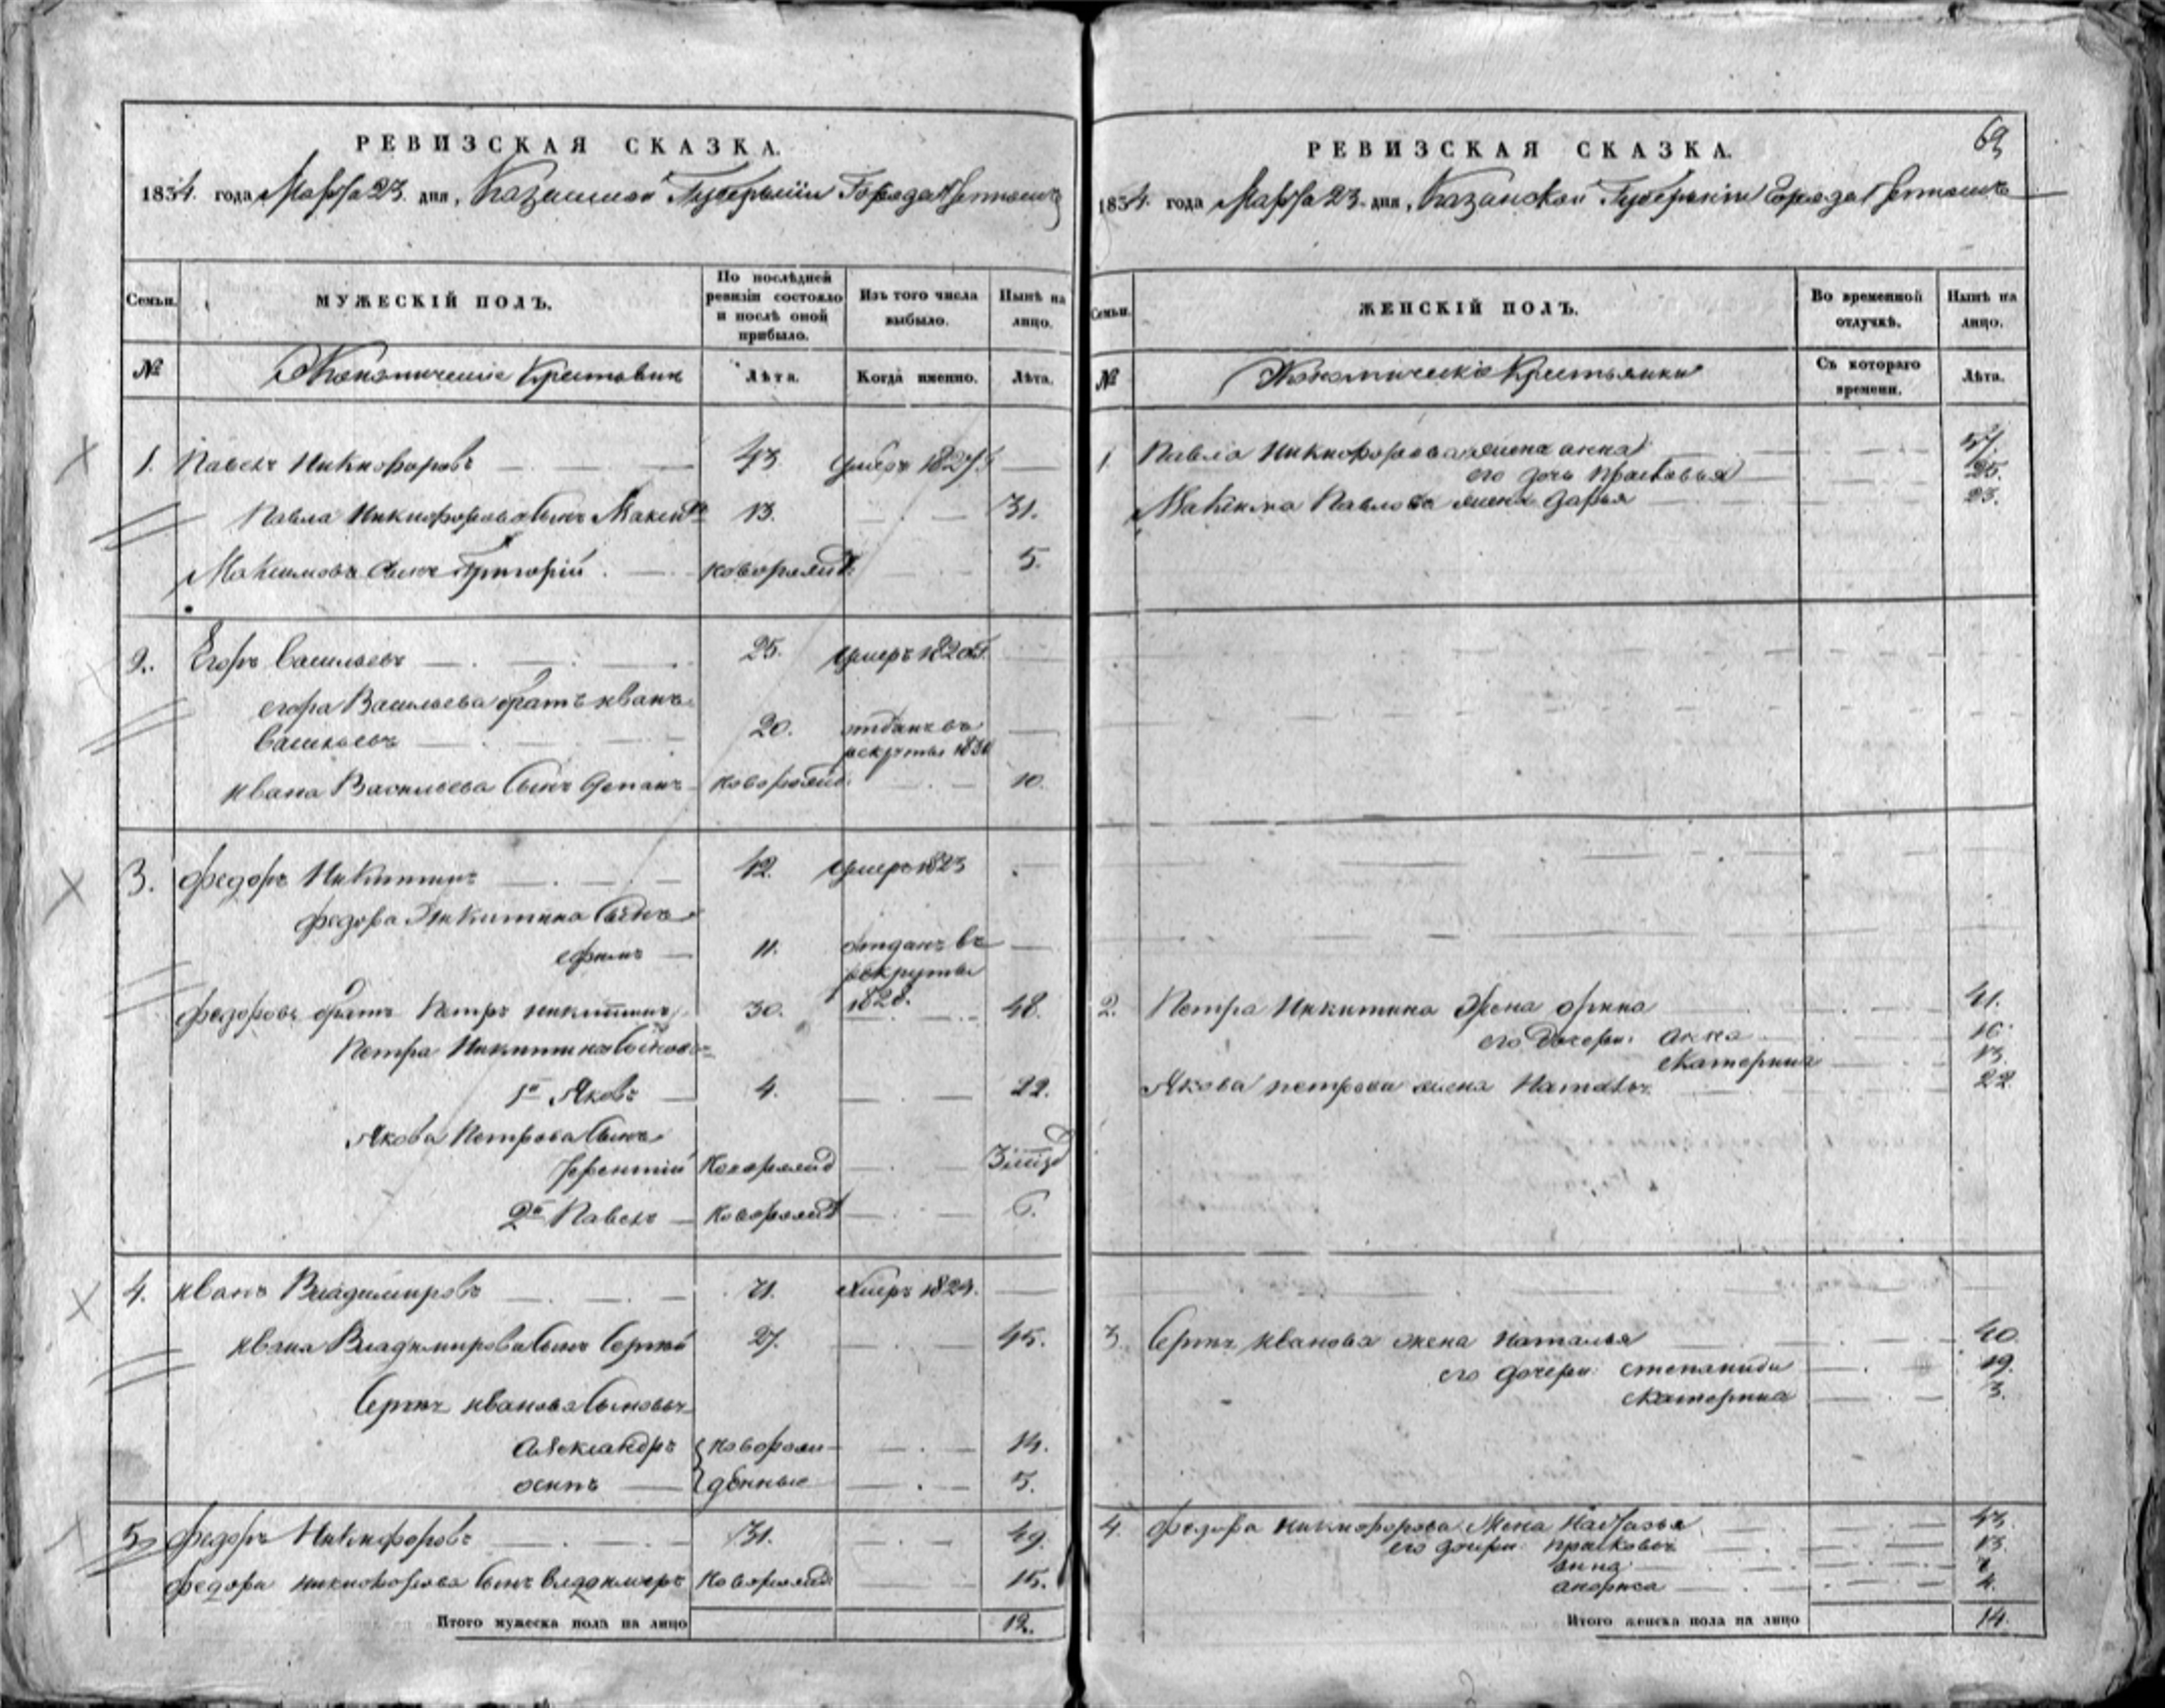 РЕВИЗСКАЯ СКАЗКА.
1834. года Марта 23. дня, Казанской Губернiи Города
Семьи.
МУЖЕСКIЙ ПОЛЪ.
По послѣдней ревизiи состояло и послѣ оной прибыло.
Изъ того числа выбыло.
Нынѣ на лицо.
№
Экономическiе Крестьяни
Лѣта.
Когда именно.
Лѣта.
1. Павелъ Никифоровъ 43 1827
Павла Никифорова сынъ Максимъ 13. 31.
Максимовъ сынъ Григорiй новорожд. 5.
2. Егоръ Васильевъ 25. умеръ 1820
егора Васильева братъ иванъ
Васильевъ 20. отданъ въ
рекруты 1830
ивана Васильева сынъ новорожд. 10.
3. федоръ Никитинъ 42. умеръ 1823
федора Никитина сынъ
ефимъ 11. отданъ въ
рекруты
1828.
федоровъ братъ Петръ никитинъ 30. 48.
Петра Никитина сыновья
1й Яковъ 4. 22.
Якова Петрова сынъ
новорожд
2й Павелъ новорожд 6.
4. иванъ Владимировъ 71. умеръ 1824.
ивана Владимирова сынъ Сергѣй 27. 45.
Сергѣя иванова сыновья
александръ новорож- 14.
осипъ денные 5.
5. федоръ Никифоровъ 31. 49.
федора никифорова сынъ владимеръ новорожд 15.
Итого мужеска пола на лицо 12.
69
РЕВИЗСКАЯ СКАЗКА.
1834. года Марта 23. дня, Казанской Губернiи Города
Семьи.
ЖЕНСКIЙ ПОЛЪ.
Во временной отлучкѣ.
Нынѣ на лицо.
№
Экономическiе Крестьянки
Съ котораго времени.
Лѣта.
1. Павла Никифорова жена анна 57.
его дочь прасковья 25.
Максима Павлова жена дарья 23.
2. Петра Никитина жена орина 41.
его дочери: анна 16.
катерина 13.
Якова петрова жена 22
3. Сергѣя иванова жена наталья 40.
его дочери: степанида 19.
катерина 3.
4. федора никифорова жена настасья 43.
его дочери прасковья 13.
анна 7.
4.
Итого женска пола на лицо 14.